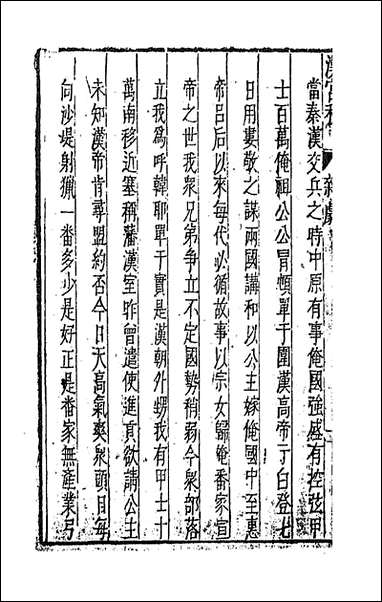 漢宮秋 雜劇
當秦漢交兵之時中原有事俺國強盛有控弦甲
士百萬俺祖公公冒頓單于圍漢高帝于白登七
日用婁敬之謀兩國講和以公主嫁俺國中至惠
帝呂后以來每代必循故事以宗女歸俺番家宣
帝之世我衆兄弟争立不定國勢稍弱今衆部落
立我爲呼韓耶單于實是漢朝外甥我有甲士十
萬南移近塞稱藩漢室昨曾遣使進貢欲請公主
未知漢帝肯尋盟約否今日天高氣爽衆頭目每
向沙堤射獵一番多少是好正是番家無產業弓